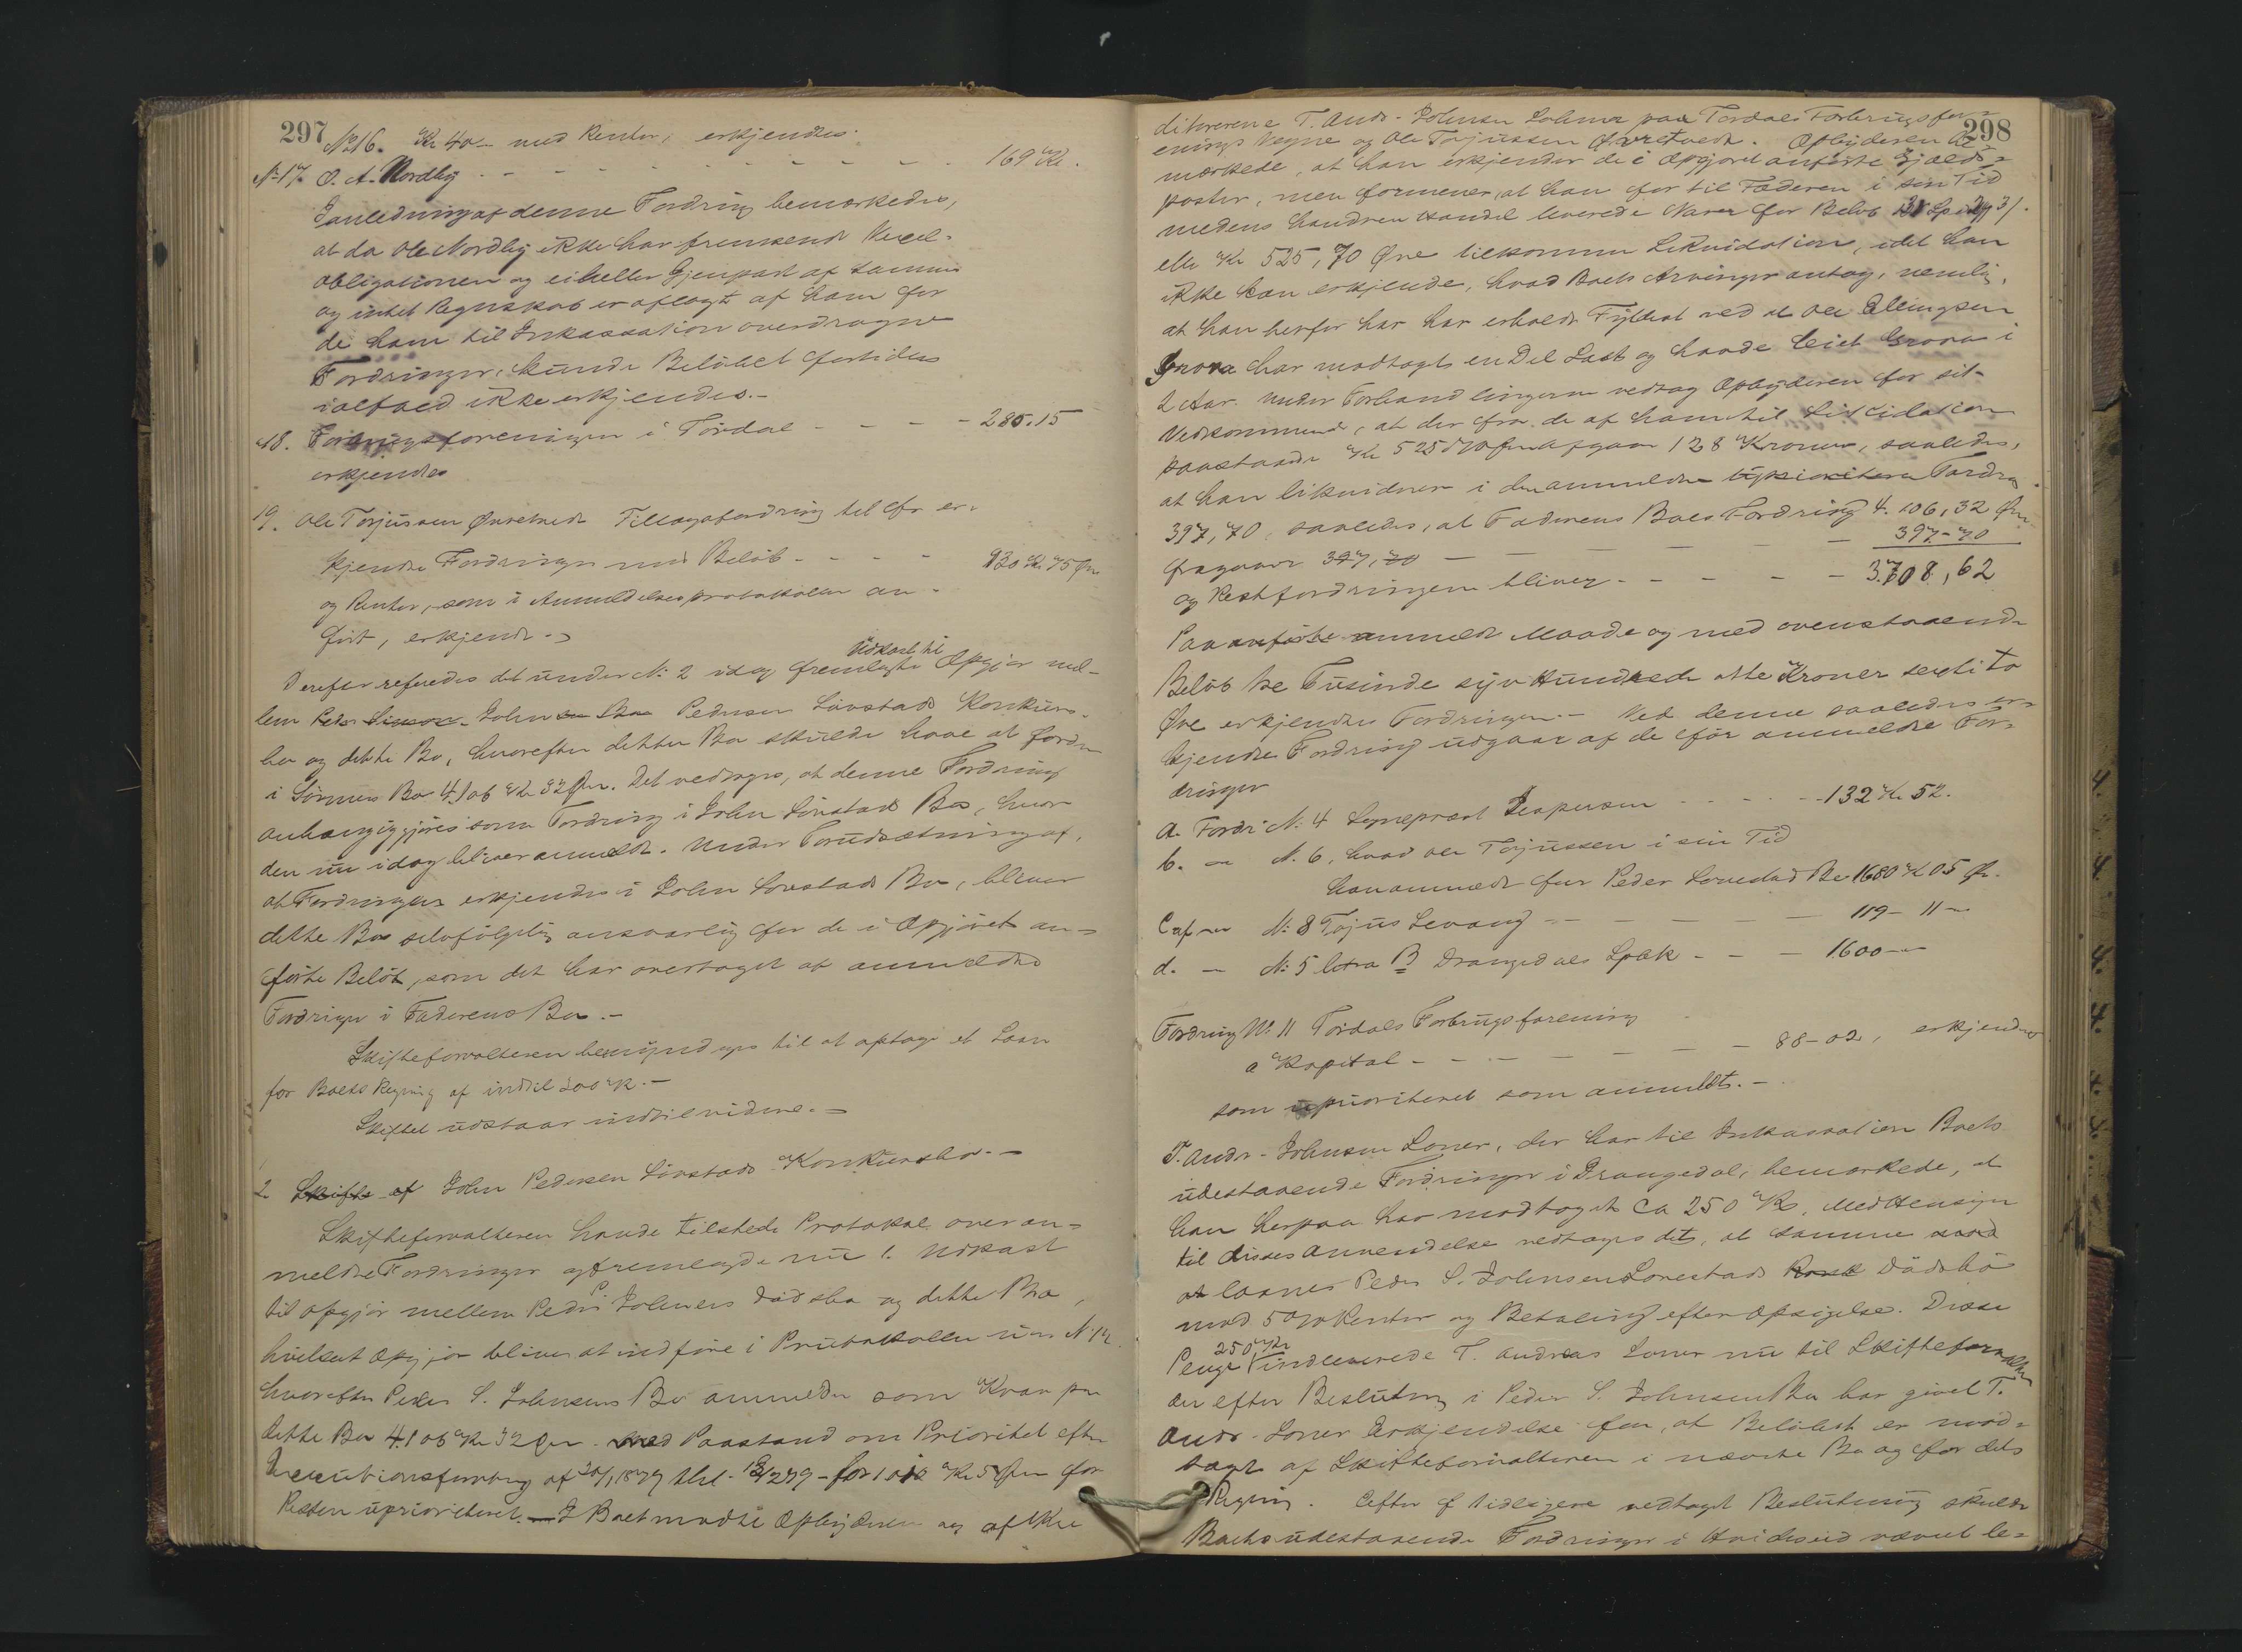 297
No 16. Kr 40 – med Renter, erkjendes.
No 17. O. A. Nordby - - - - - - - - 169 Kr.
I anledning af denne Fordring bemærkedes,
at da Ole Nordby ikke har fremsendt Vexel-
obligationen og ei heller Gjenpart af samme
og intet Regnskab er aflagt af ham for
de ham til Inkassation overdragne
Fordringer, kunde Beløbet fortiden
ialfald ikke erkjendes.-
18. Forbrugsforeningen i Tørdal - - - - 285.15
erkjendtes
19. Ole Torjussen Tillægsfordring til før er-
kjendte Fordringer med Beløb - - - - 930 Kr. 75 Øre
og Renter, som i Anmeldelsesprotokollen an-
ført, erkjendt.-
Derefter refereredes det under N: 2 idag fremlagte Udkast til Opgjør mel-
lem Peder John Pedersen Løvstads Konkurs-
bo og dette Bo, hvorefter dette Bo skulde have at fordre
i Sønnens Bo 4106 Kr 32 Øre. Det vedtoges, at denne Fordring
anhængiggjøres som Fordring i John Løvstads Bo, hvor
den nu idag bliver anmeldt. Under Forudsætning af,
at Fordringen erkjendes i John Lovstads Bo, bliver
dette Bo selvfølgelig ansvarlig for de i Opgjøret an-
førte Beløb, som det har overtaget at anmeldte
Fordringer i Faderens Bo.-
Skifteforvalteren bemyndiges til at optage et Laan
for Boets Regning af indtil 200 Kr.-
Skiftet udstaar indtil videre.-
2 Skifte af John Pedersen Løvstads Konkursbo.-
Skifteforvalteren havde tilstede Protokol over an-
meldte Fordringer og fremlagde nu 1. Udkast
til Opgjør mellem Peder Johnsens Dødsbo og dette Bo,
hvilket Opgjør bliver at indføre i Protokollen
hvorefter Peder S. Johnsens Bo anmelder som Krav paa
dette Bo 4106 Kr 32 Øre. Med Paastand om Prioritet efter
Executionsforretning af for Kr 5 Øre for
Resten uprioriteret. – I Boet mødte Opbyderen og af Kre
298
ditorerne T. Andr. Johnsen Loner paa Tørdals Forbrugsfor-
enings Vegne og Ole Torjussen . Opbyderen be-
mærkede, at han erkjender de i Opgjøret anførte Gjælds-
poster, men formener, at han for til Faderen i sin Tid
medens han drev Handel leverede Varer for Beløb 131 Spd
eller Kr 525,70 Øre tilkommer Likvidation, idet han
ikke kan erkjende, hvad Boets Arvinger antog, nemlig,
at han herfor har har erholdt Fyldest ved at Ole Ellingsen
Grova har modtaget en Del Last og havde leiet Grova i
2 Aar. Under Forhandlingerne vedtog Opbyderen for sit
Vedkommende, at der fra de af ham til Likvidation
paastaaede Kr 525,70 Øre afgaar 128 Kroner, saaledes,
at han likviderer i den anmeldte uprioriterte Fordring
397,70, saaledes, at Faderens Boes Fordring 4.106,32 Øre
fragaaer 397,70 - - - - - - 397-70
og Restfordringen bliver - - - - - 3708,62
Paa anførte anmeldt Maade og med ovenstaaende
Beløb tre Tusinde syv Hundrede otte Kroner sexti to
Øre erkjendtes Fordringen.- Ved denne saaledes er-
kjendte Fordring udgaar af de før anmeldte For-
dringer
a. Fordr. N: 4 Sogneprest Jespersen - - - - 132 Kr. 52.
b. – N. 6, hvad Ole Torjussen i sin Tid
har anmeldt for Peder Lovestad Bo 1680 Kr 05 Ør.
C af – N: 8 Tojus Levang - - - - - 119 – 11 –
d. – N: 5 litra B Drangedals Spbk - - - 1600 –
Fordring No 11 Tørdals Forbrugsforening
a Kapital - - - - - - - 88-02, erkjendes
som uprioriteret som anmeldt.-
T. Andr. Johnsen Loner, der har til Inkassation Boets
udestaaende Fordringer i Drangedal, bemærkede, at
han herpaa har modtaget Ca 250 Kr. Med Hensyn
til disses Anvendelse vedtoges det, at samme
at laanes Peder S. Johnsen Lovestads Dødsbo
mod 5 % Renter og Betaling efter Opsigelse. Disse
Penge 250 Kr indleverede T. Andreas Loner nu til Skifteforvalteren
der efter Beslutning i Peder S. Johnsens Bo har givet T.
Andr. Loner Erkjendelse for, at Beløbet er mod-
taget af Skifteforvalteren i nævnte Bo og for dets
Regning. Efter tidligere vedtaget Beslutning skulde
Boets udestaaende Fordringer i Hvideseid været le-